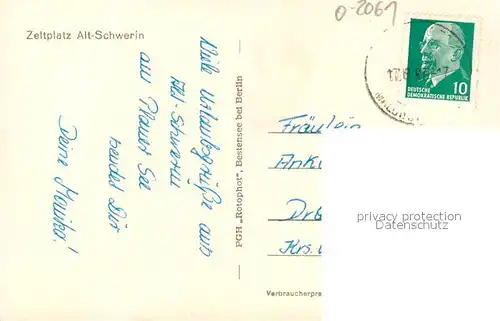 0-2061
Zeltplatz Alt-Schwerin
Viele Urlaubsgrüße aus
Alt-Schwerin
am Plauer See
sendet Dir
Deine Monika!
PGH „Rotophot", Bestensee bei Berlin
10
DEUTSCHE
DEMOKRATISCHE REPUBLIK
Fräulein
Anku
Krs.
privacy protection
Datenschutz
Verbraucherpre